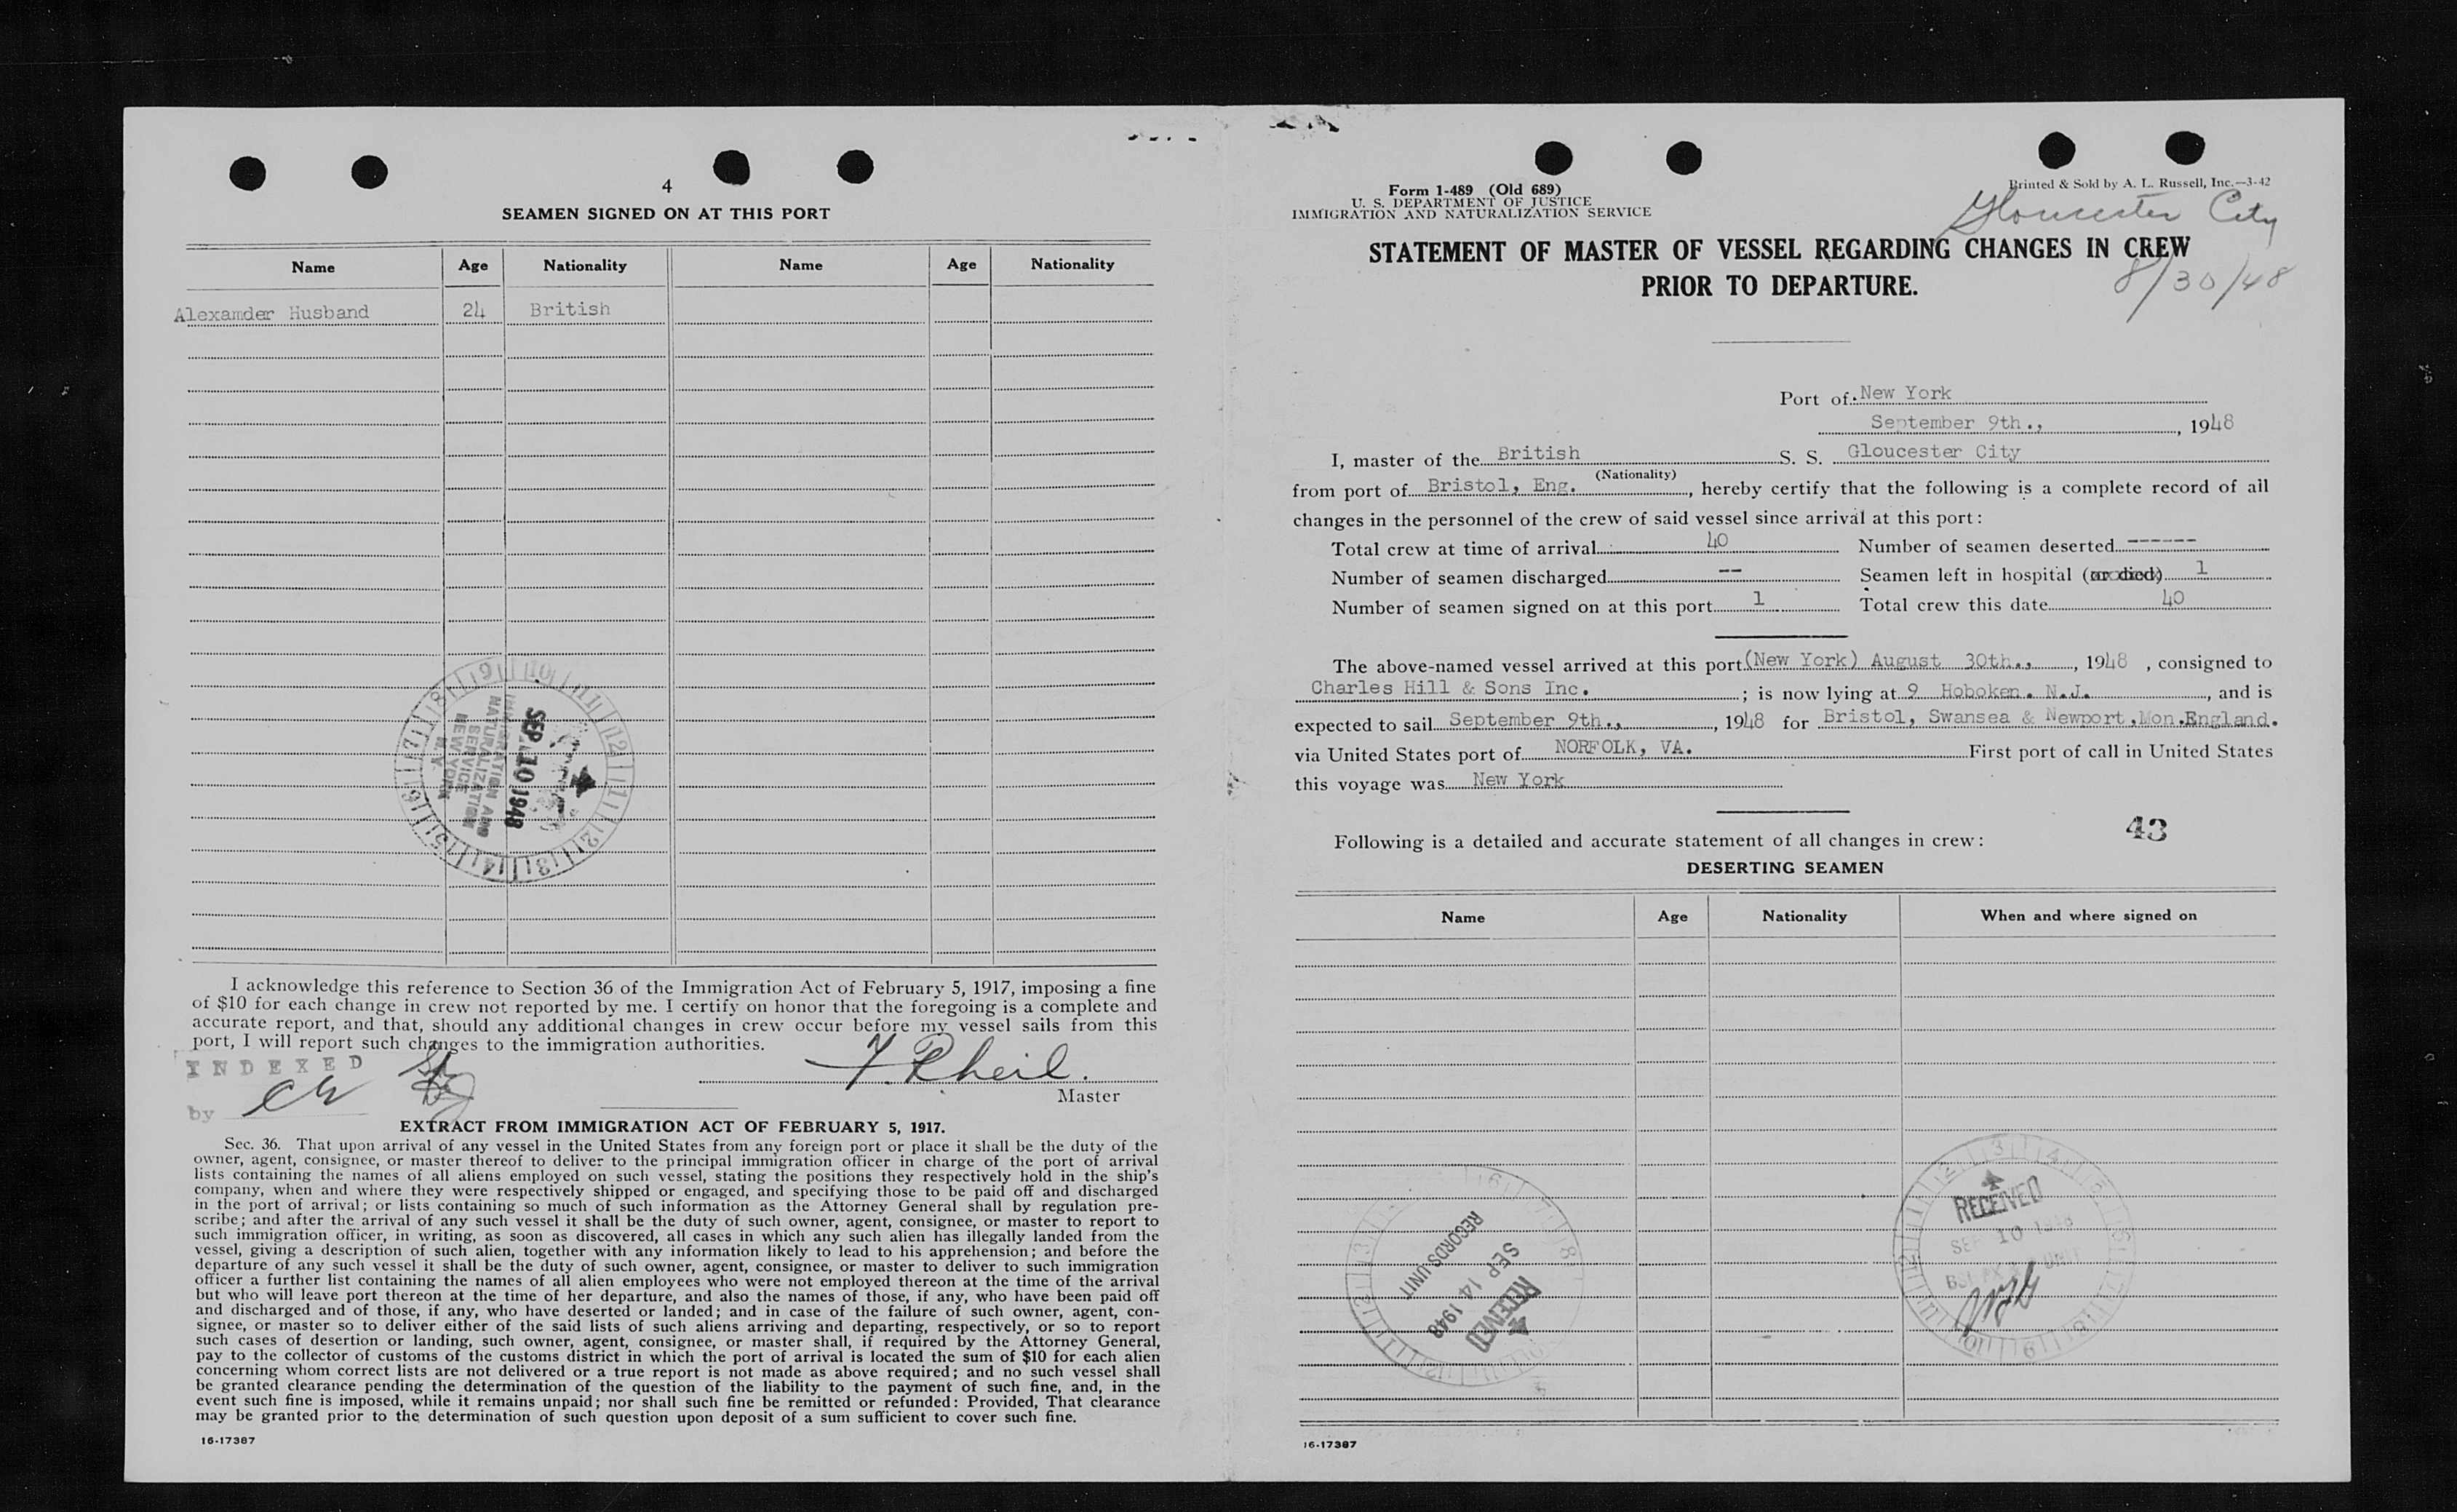 4
SEAMEN SIGNED ON AT THIS PORT
Name Age Nationality Name Age Nationality
Alexamder Husband 24 British
9 10 11 12 1 2 3 4 5 6 7 8
IMMIGRATION AND
NATURALIZATION
SERVICE
NEW YORK
N.Y.
SEP 10 1948
I acknowledge this reference to Section 36 of the Immigration Act of February 5, 1917, imposing a fine
of $10 for each change in crew not reported by me. I certify on honor that the foregoing is a complete and
accurate report, and that, should any additional changes in crew occur before my vessel sails from this
port, I will report such changes to the immigration authorities.
INDEXED
by
Master
EXTRACT FROM IMMIGRATION ACT OF FEBRUARY 5, 1917.
Sec. 36. That upon arrival of any vessel in the United States from any foreign port or place it shall be the duty of the
owner, agent, consignee, or master thereof to deliver to the principal immigration officer in charge of the port of arrival
lists containing the names of all aliens employed on such vessel, stating the positions they respectively hold in the ship's
company, when and where they were respectively shipped or engaged, and specifying those to be paid off and discharged
in the port of arrival; or lists containing so much of such information as the Attorney General shall by regulation pre-
scribe; and after the arrival of any such vessel it shall be the duty of such owner, agent, consignee, or master to report to
such immigration officer, in writing, as soon as discovered, all cases in which any such alien has illegally landed from the
vessel, giving a description of such alien, together with any information likely to lead to his apprehension; and before the
departure of any such vessel it shall be the duty of such owner, agent, consignee, or master to deliver to such immigration
officer a further list containing the names of all alien employees who were not employed thereon at the time of the arrival
but who will leave port thereon at the time of her departure, and also the names of those, if any, who have been paid off
and discharged and of those, if any, who have deserted or landed; and in case of the failure of such owner, agent, con-
signee, or master so to deliver either of the said lists of such aliens arriving and departing, respectively, or so to report
such cases of desertion or landing, such owner, agent, consignee, or master shall, if required by the Attorney General,
pay to the collector of customs of the customs district in which the port of arrival is located the sum of $10 for each alien
concerning whom correct lists are not delivered or a true report is not made as above required; and no such vessel shall
be granted clearance pending the determination of the question of the liability to the payment of such fine, and, in the
event such fine is imposed, while it remains unpaid; nor shall such fine be remitted or refunded: Provided, That clearance
may be granted prior to the determination of such question upon deposit of a sum sufficient to cover such fine.
16-17387
Form 1-489 (Old 689)
U. S. DEPARTMENT OF JUSTICE
IMMIGRATION AND NATURALIZATION SERVICE
Printed & Sold by A. L. Russell, Inc.—3-42
Gloucester City
STATEMENT OF MASTER OF VESSEL REGARDING CHANGES IN CREW
PRIOR TO DEPARTURE.
8/30/48
Port of New York
September 9th., , 1948
I, master of the British S. S. Gloucester City
(Nationality)
from port of Bristol, Eng. , hereby certify that the following is a complete record of all
changes in the personnel of the crew of said vessel since arrival at this port:
Total crew at time of arrival 40 Number of seamen deserted ------
Number of seamen discharged -- Seamen left in hospital (or died) 1
Number of seamen signed on at this port 1 Total crew this date 40
The above-named vessel arrived at this port (New York) August 30th., , 1948 , consigned to
Charles Hill & Sons Inc. ; is now lying at 9 Hoboken. N.J. , and is
expected to sail September 9th., , 1948 for Bristol, Swansea & Newport.Mon.England.
via United States port of NORFOLK, VA. First port of call in United States
this voyage was New York
43
Following is a detailed and accurate statement of all changes in crew:
DESERTING SEAMEN
Name Age Nationality When and where signed on
RECORDS UNIT
SEP 14 1948
RECEIVED
RECEIVED
SEP 10 1948
16-17387